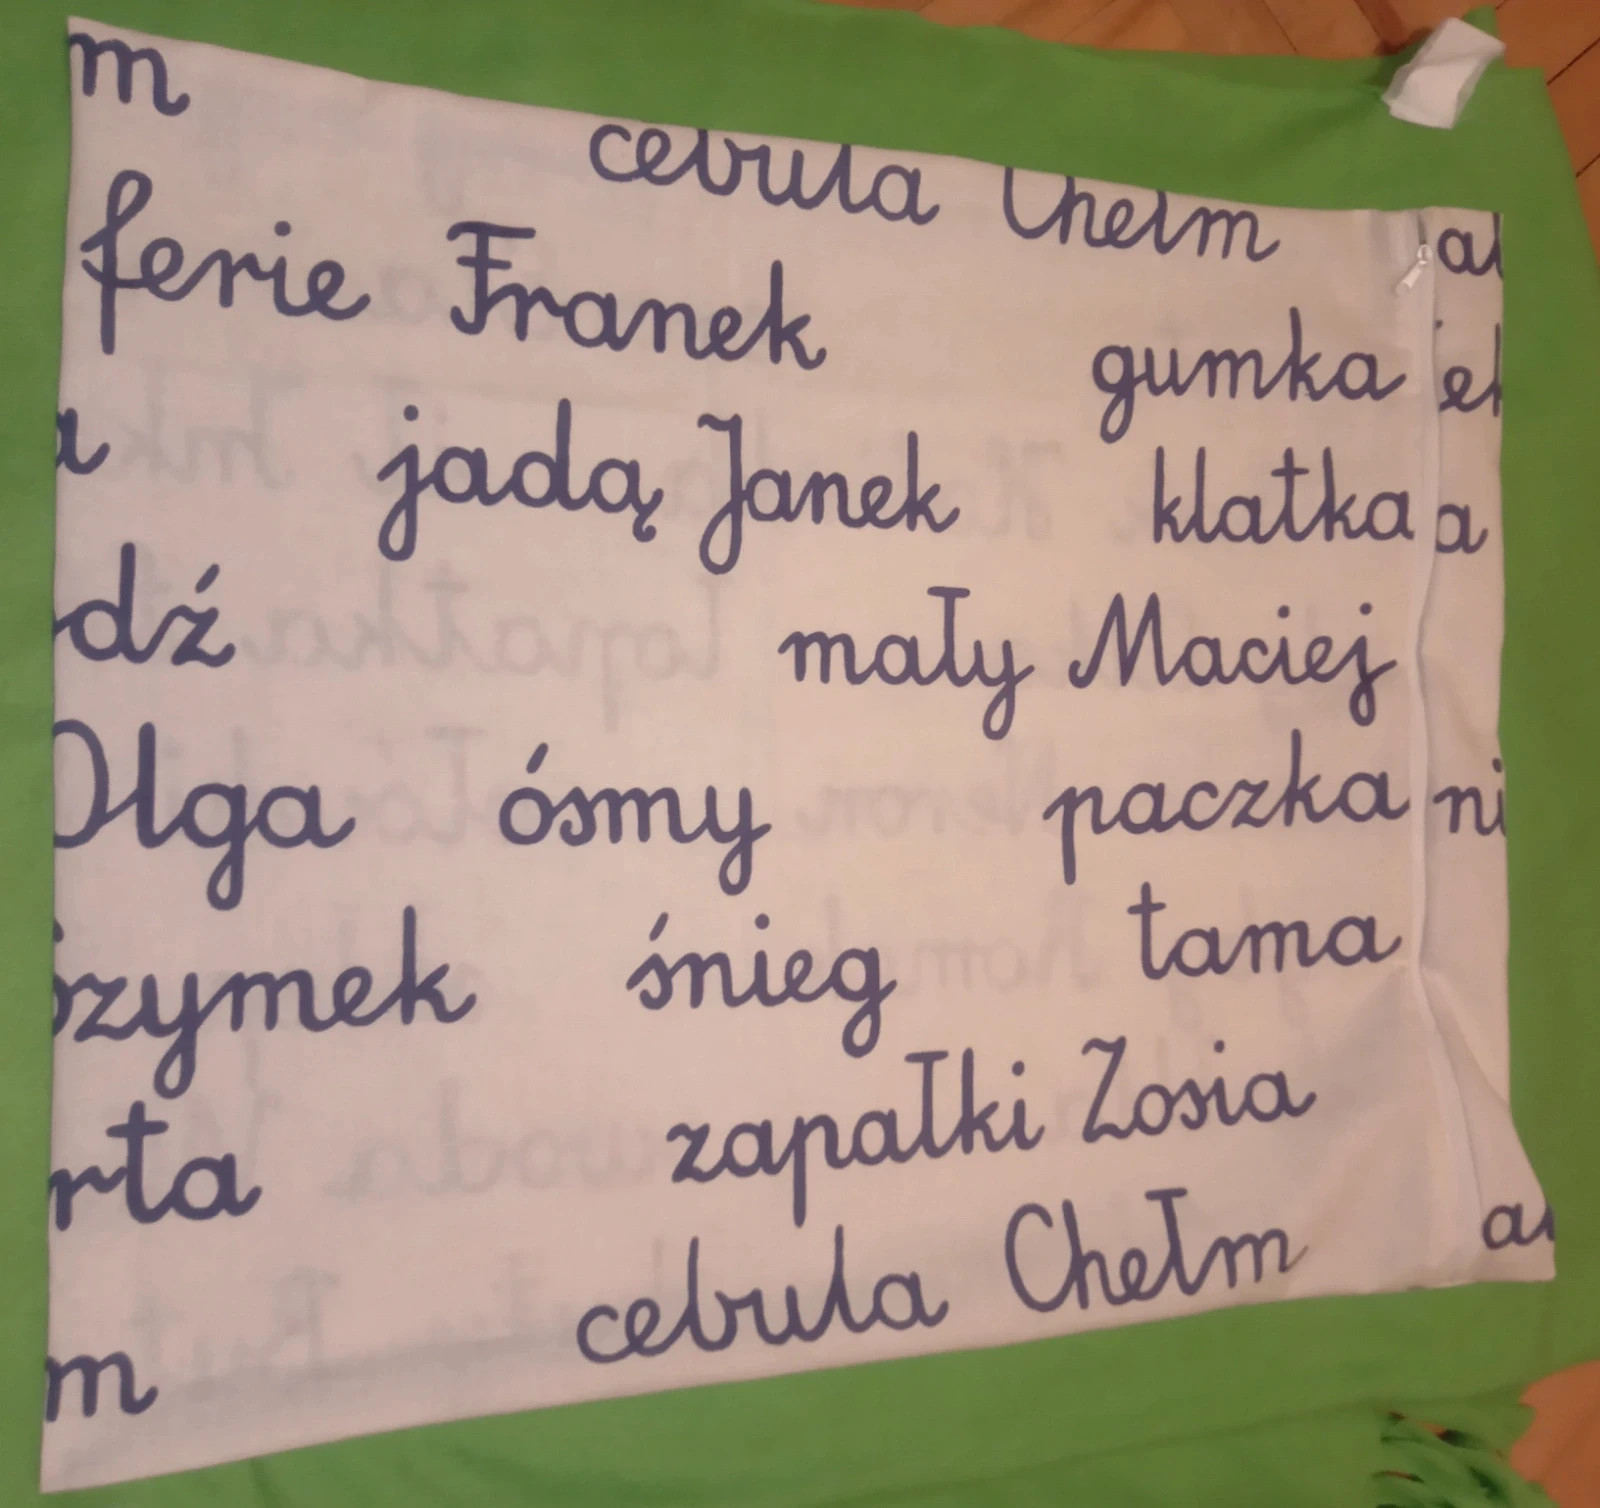 m
cebula Chełm
ferie Franek
gumka
jadą Janek klatka a
dź mały Maciej
Olga ósmy paczka ni
zymek śnieg tama
rta zapałki Zosia
cebula Chełm
m